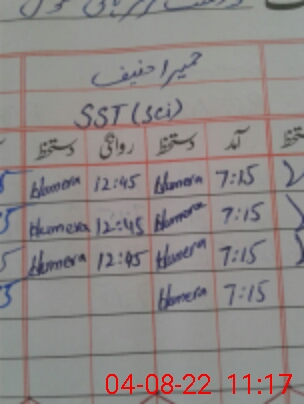 حمیرا حنیف
SST (sci)
آمد دستخط روانگی دستخط
7:15 Humera 12:45 Humera
7:15 Humera 12:45 Humera
7:15 Humera 12:45 Humera
7:15 Humera
04-08-22 11:17